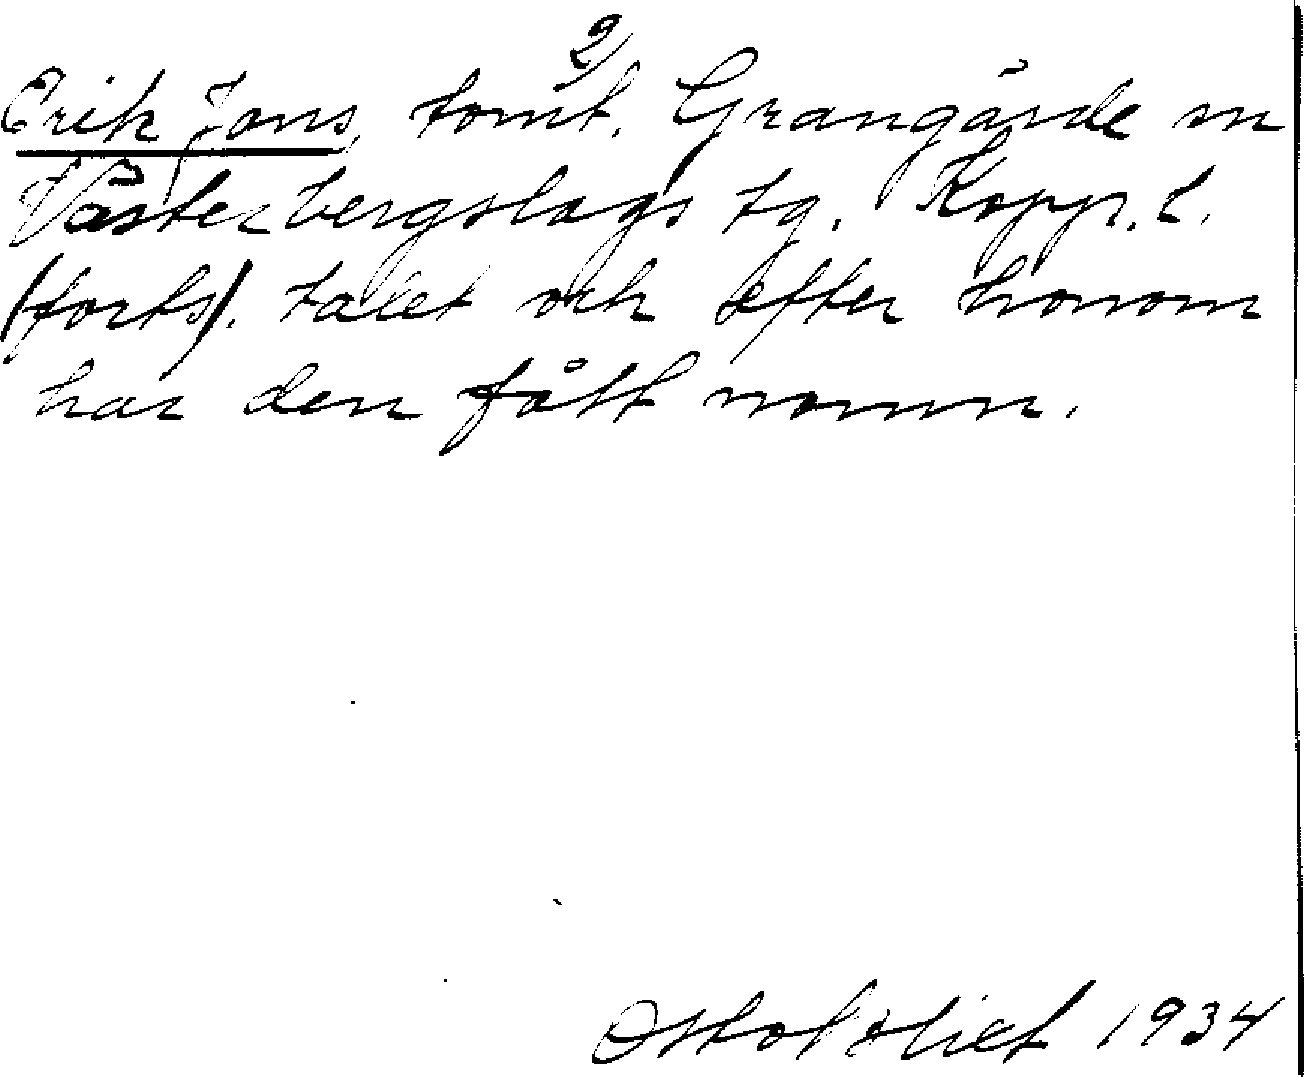 2
Erik Jons, tomt. Grangärde sn
Västerbergslags tg. Kopp. l.
(forts). talet och efter honom
har den fått namn.
Otto 1934